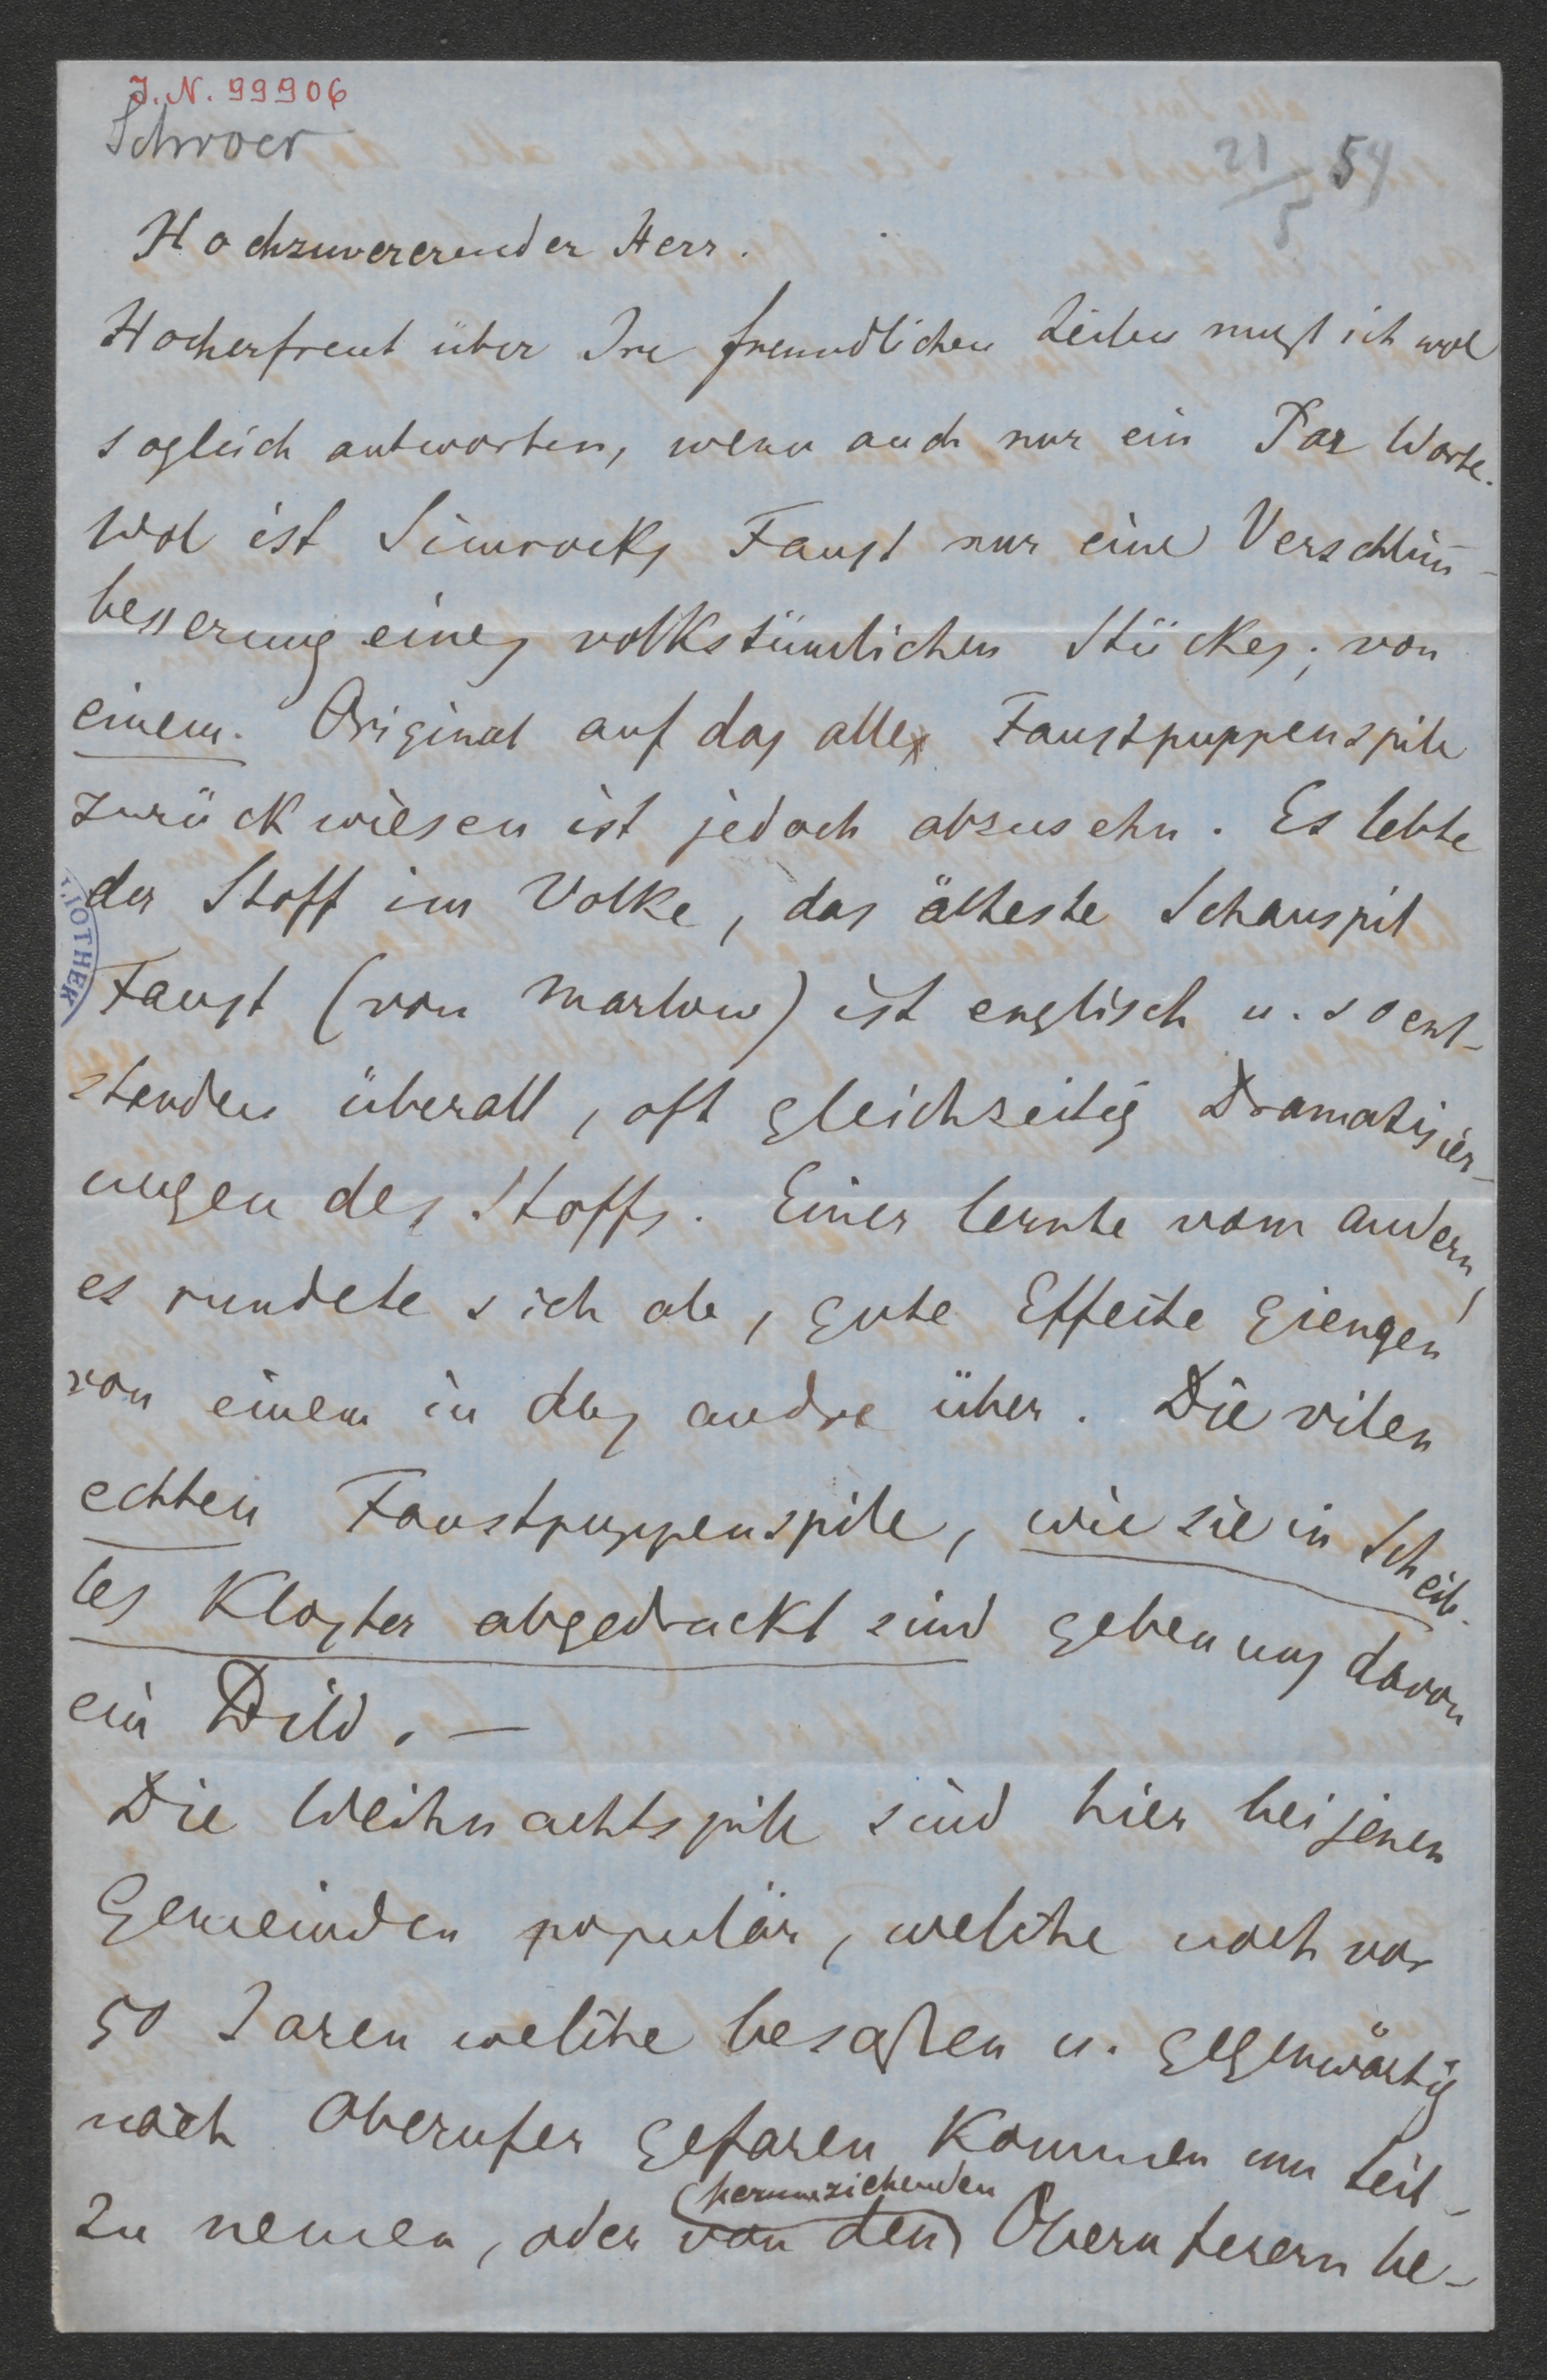 J. N. 99906
Schroer
21/5 54
Hochzuvererender Herr.
Hocherfreut über Ire freundlichen Zeilen mußt ich wol
sogleich antworten, wenn auch nur ein Par Worte.
Wol ist Simrocks Faust nur eine Verschlim̄-
besserung eines volkstümlichen Stückes; von
einem Original auf das alle Faustpuppenspile
zurückwiesen ist jedoch abzusehn. Es lebte
der Stoff im Volke, das älteste Schauspil
Faust (von Marlow) ist englisch u. so ent-
standen überall, oft gleichzeitig Dramatisier-
ungen des Stoffs. Einer lernte vom andern,
es rundete sich ab, gute Effecte giengen
von einem in das andre über. Die vilen
echten Faustpuppenspile, wie sie in Scheib-
les Kloster abgedruckt sind geben uns davon
ein Bild. —
Die Weihnachtspile sind hier bei jenen
Gemeinden populär, welche noch vor
50 Jaren welche besaßen u. gegenwärtig
nach Oberufer gefaren kommen um teil-
zu nemen, oder von den herumziehenden Oberuferern be-
IOTHEK